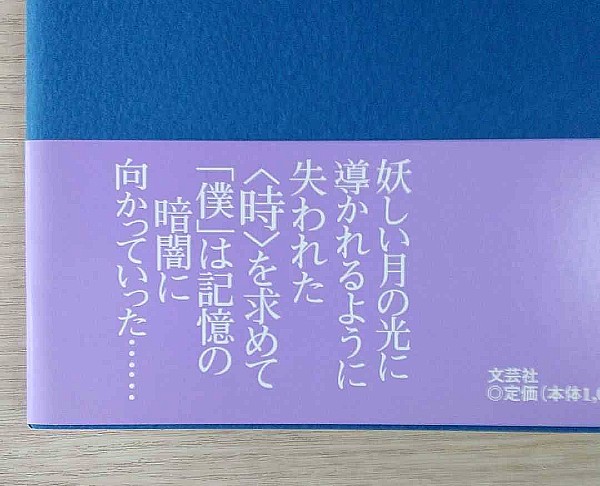 妖しい月の光に
導かれるように
失われた
〈時〉を求めて
「僕」は記憶の
暗闇に
向かっていった……
文芸社
◎定価（本体1,